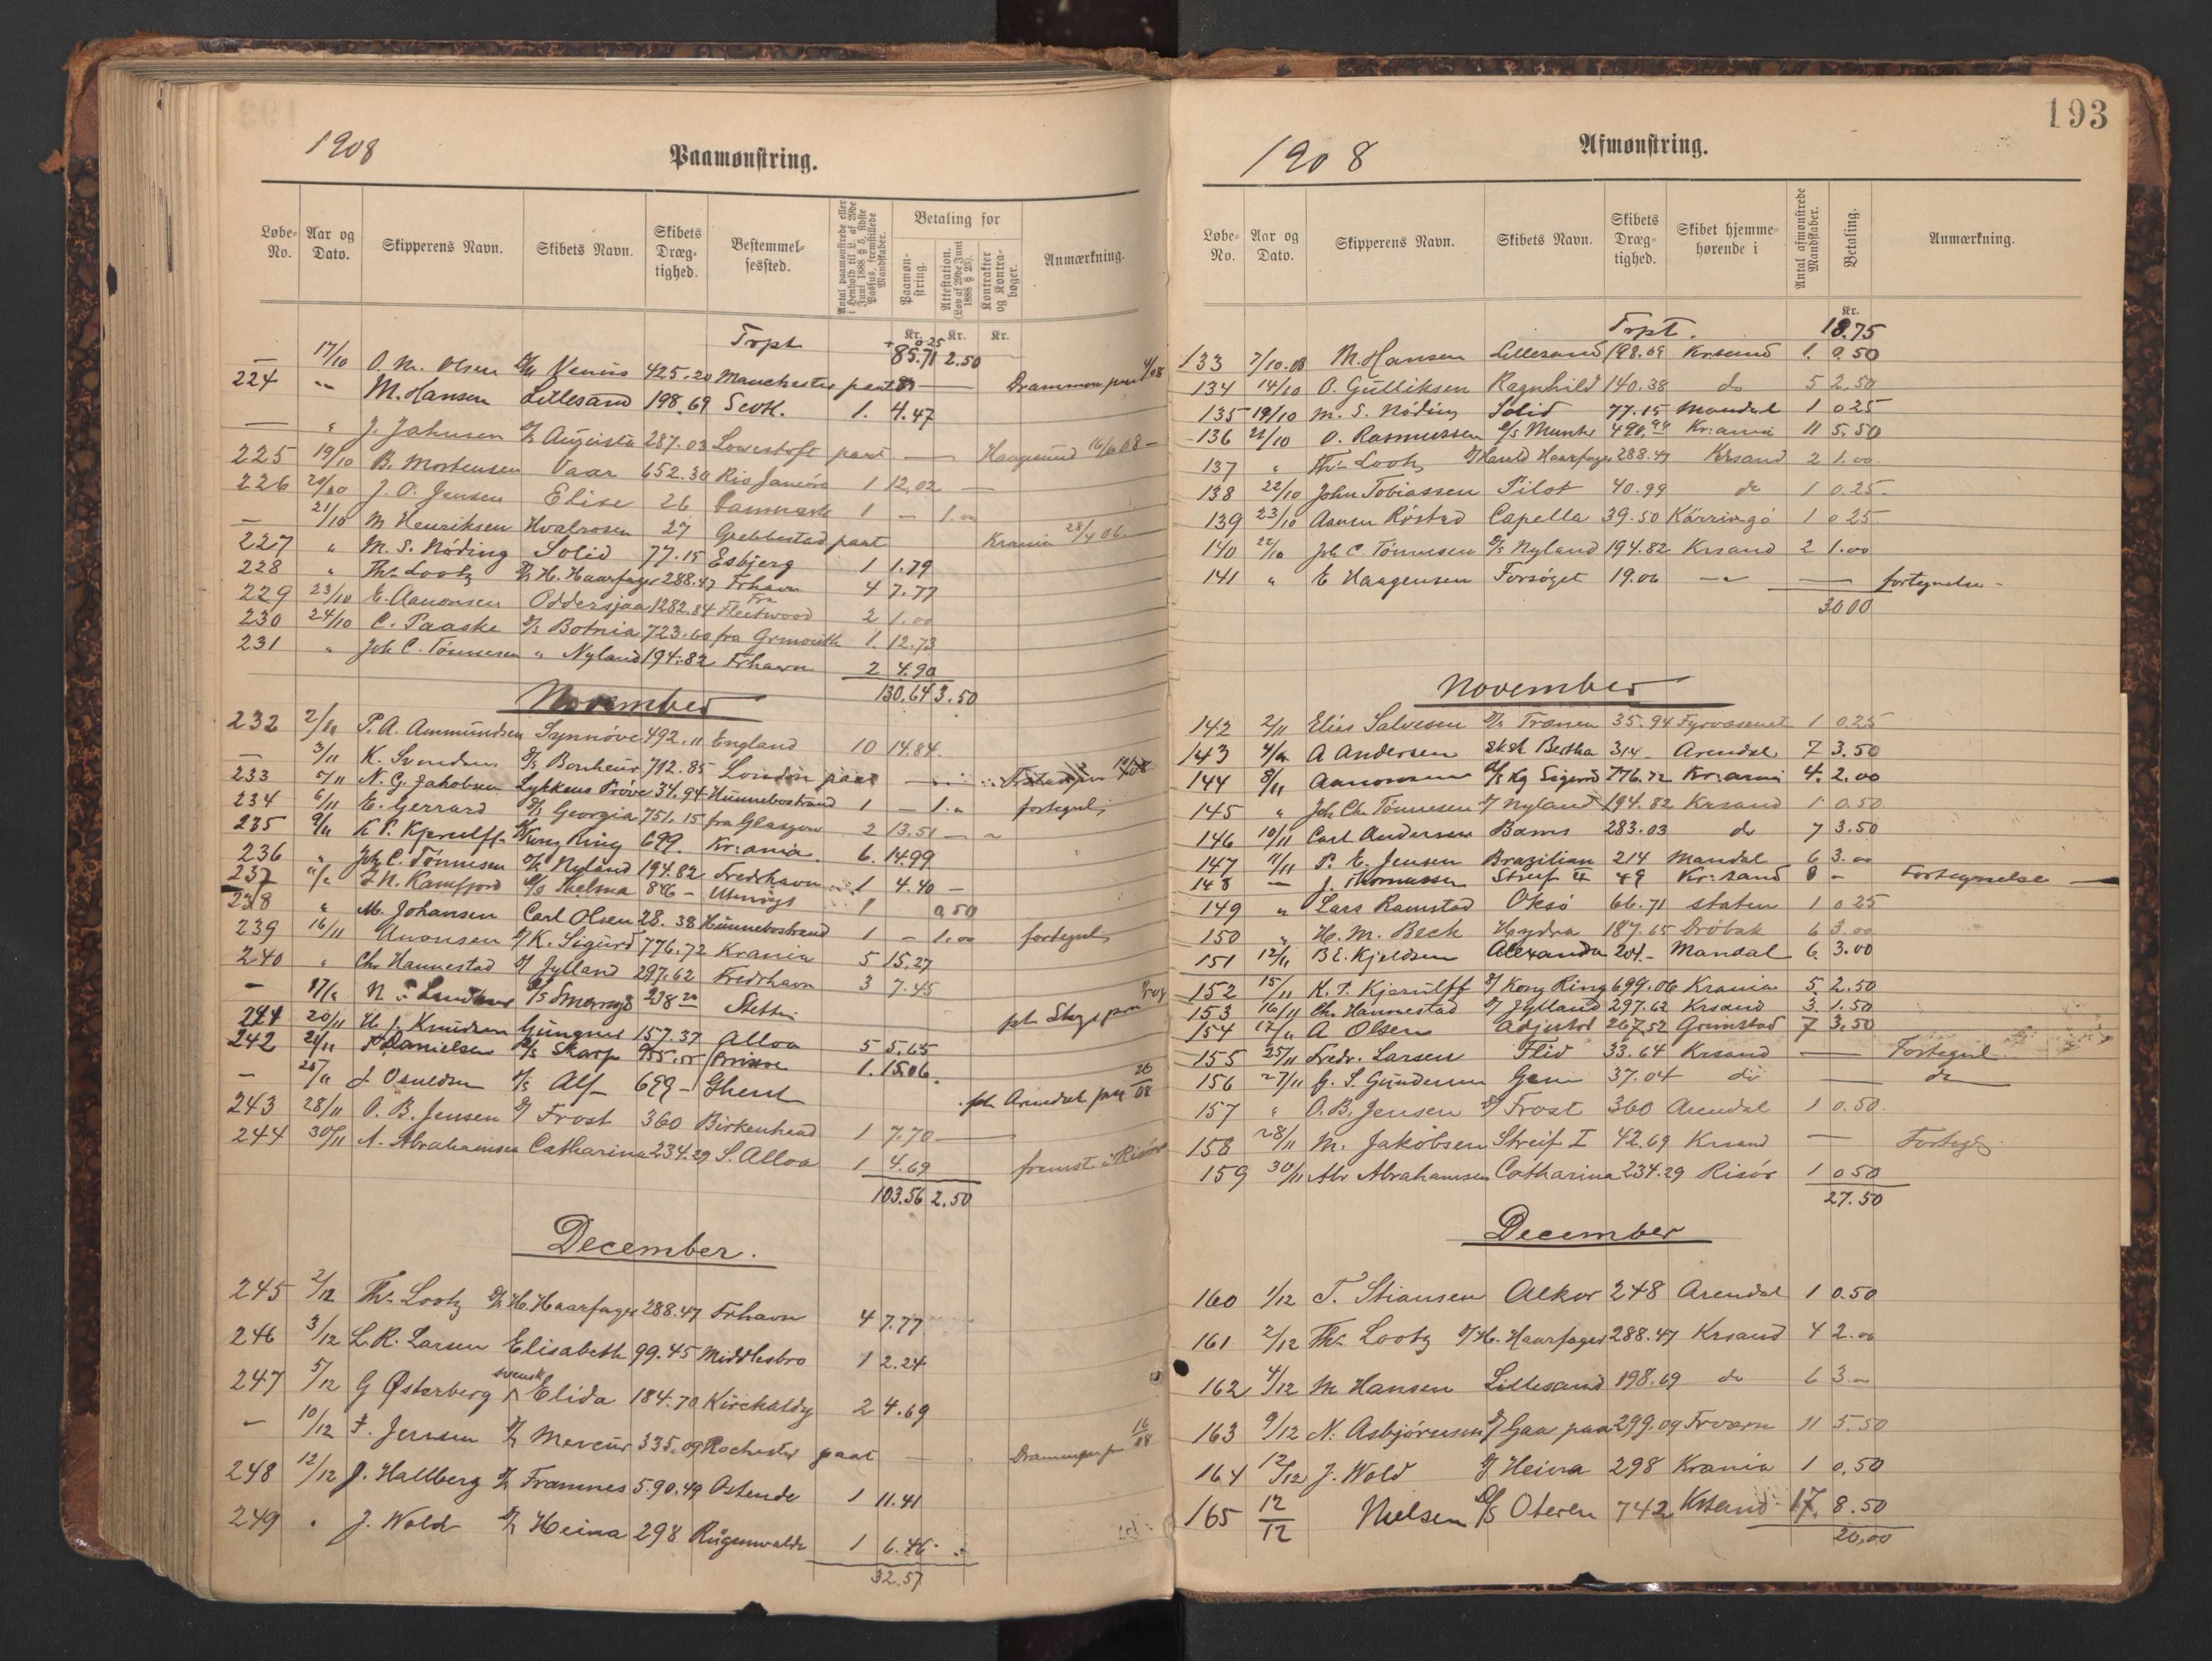 1908
Paamønstring.
Løbe-No. Aar og Dato. Skipperens Navn. Skibets Navn. Skibets Dræg-tighed. Bestemmel-sessted. Antal paamønstrede eller i Henhold til L. af 29de Juni 1888 § 5, sidste Passus, fremstillede Mandskaber. Betaling for Paamøn-string. Attestation. (Lov af 29de Juni 1888 § 23). Kontrakter og Kontra-bøger. Anmærkning.
Kr. Kr. Kr.
Trpt 85.71 2.50
— 17/10 O. M. Olsen Venus 425.20 Manchester paat — Drammen
224 " M. Hansen Lillesand 198.69 1. 4.47
— " J. Jahnsen Augusta 287.03 Lowestoft paat — Haugesund
225 19/10 B. Mortensen Vaar 652.30 Rio Janeiro 1 12.02 —
226 20/10 J. O. Jensen Elise 26 Danmark 1 — 1.00
— 21/10 M Henriksen Hvalrosen 27 Grebbestad paat Krania 28/4 06
227 " M. S. Nöding Solid 77.15 Esbjerg 1 1.79
228 " Thr Lootz H. Haarfager 288.47 Frhavn 4 7.77
229 23/10 E. Aanonsen Oddersjaa 1282.84 Fra Fleetwood 2 1.00
230 24/10 C. Paaske D/S Botnia 723.60 fra Grmouth 1. 12.73
231 " Joh C. Tönnesen " Nyland 194.82 Frhavn 2 4.90
130.64 3.50
November
232 2/11 P. A. Ammundsen Synnöve 492.11 England 10 14.84
— 3/11 K. Svendsen D/S Bonheur 712.85 London paat —
233 5/11 N. G. Jakobsen Lykkens Pröve 34.94 Hunnebostrand 1 — 1.00 fortegnels
234 6/11 E. Gerrard D/S Georgia 751.15 fra Glasgow 2 13.51 —
235 9/11 K P. Kjerulff Kong Ring 699. Kr:ania 6. 14.99
236 " Joh C. Tönnesen Nyland 194.82 Fredrhavn 1 4.40 —
237 J. N. Kamfjord D/S Thelma 846 — 1 0.50
238 " M. Johansen Carl Olsen 28.38 Hunnebostrand 1 — 1.00 fortegnels
239 16/11 K. Sigurd 776.72 Krania 5 15.27
240 " Chr Hannestad Jylland 297.62 Fredrhavn 3 7.45
— 17/11 238 Stettin
241 20/11 Knudsen Gungner 157.37 Alloa 5 5.65
242 21/11 Danielsen D/S Skarp 955.55 1. 15.06
— 25/11 D/S Alf 699 — Ghent Arendal
243 28/11 O. B. Jensen Frost 360 Birkenhead 1 7.70 —
244 30/11 A. Abrahamsen Catharina 234.29 S. Alloa 1 4.69 fremst. i Risör
103.56 2.50
December.
245 2/12 Thr Lootz H. Haarfager 288.47 Frhavn 4 7.77
246 3/12 L. R. Larsen Elisabeth 99.45 Middlesbro 1 2.24
247 5/12 G Østerberg svensk Elida 184.70 Kirckaldy 2 4.69
— 10/12 F. Jensen Mercur 335.09 Rochester paat — Drammen
248 12/12 J. Hallberg Framnes 590.49 Ostende 1 11.41
249 " J. Wold Heima 298 Rügenwalde 1 6.46
32.57
193
1908
Afmønstring.
Løbe-No. Aar og Dato. Skipperens Navn. Skibets Navn. Skibets Dræg-tighed. Skibet hjemme-hørende i Antal afmønstrede Mandskaber. Betaling. Anmærkning.
Kr.
Trpt. 18.75
133 7/10.08 M. Hansen Lillesand 198.69 Krsand 1. 0.50
134 14/10 O. Gulliksen Ragnhild 140.38 do 5 2.50
135 19/10 M. S. Nöding Solid 77.15 Mandal 1 0 25
136 21/10 O. Rasmussen D/S Munter 490.94 Kr:ania 11 5.50
137 " Thr Lootz Harald Haarfager 288.47 Krsand 2 1.00
138 22/10 John Tobiassen Pilot 40.99 do 1 0.25
139 23/10 Aanen Röstad Capella 39.50 Kärringö 1 0 25
140 22/10 Joh C. Tönnesen D/S Nyland 194.82 Krsand 2 1.00
141 " E Haagensen Forsöget 19.06 — " — fortegnelse
30 00
November
142 2/11 Elias Salvesen D/S Tranen 35.94 Fyrvæsenet 1 0.25
143 4/11 A Andersen Bertha 314 Arendal 7 3.50
144 8/11 Aanonsen D/S Kg Sigurd 776.72 Kr:ania 4. 2.00
145 " Joh Chr Tönnesen Nyland 194.82 Krsand 1 0.50
146 10/11 Carl Andersen Bams 283.03 do 7 3.50
147 11/11 P. E. Jensen Brazilian 214 Mandal 6 3.00
148 — J. Thomassen Streif II 49 Kr:sand — Fortegnelse
149 " Lars Ramstad Oksö 66.71 staten 1 0 25
150 " H. M. Beck Hydra 187.65 Dröbak 6 3.00
151 12/11 B E. Kjeldsen Alexandra 204.- Mandal 6 3.00
152 15/11 K. P. Kjerulff Kong Ring 699.06 Krania 5 2.50
153 16/11 Chr Hannestad Jylland 297.62 Krsand 3 1.50
154 17/11 A Olsen Adjutor 267.52 Grimstad 7 3,50
155 25/11 Fredr. Larsen Flid 33.64 Krsand — Fortegnel
156 27/11 G. S. Gundersen Gem 37.04 do — do
157 " O. B. Jensen Frost 360 Arendal 1 0.50.
158 28/11 M. Jakobsen Streif I 42.69 Krsand —
159 30/11 Abr Abrahamsen Catharina 234.29 Risör 1 0 50
27.50
December
160 1/12 T. Stiansen Alkor 248 Arendal 1 0.50
161 2/12 Thr Lootz H. Haarfager 288.47 Krsand 4 2.00
162 4/12 M Hansen Lillesand 198.69 do 6 3.00
163 9/12 N. Asbjörnsen Gaa paa 299.09 Frværn 11 5.50
164 12/12 J. Wold Heima 298 Krania 1 0.50
165 12/12 Nielsen D/S Oteren 742 Krsand 17. 8.50
20,00